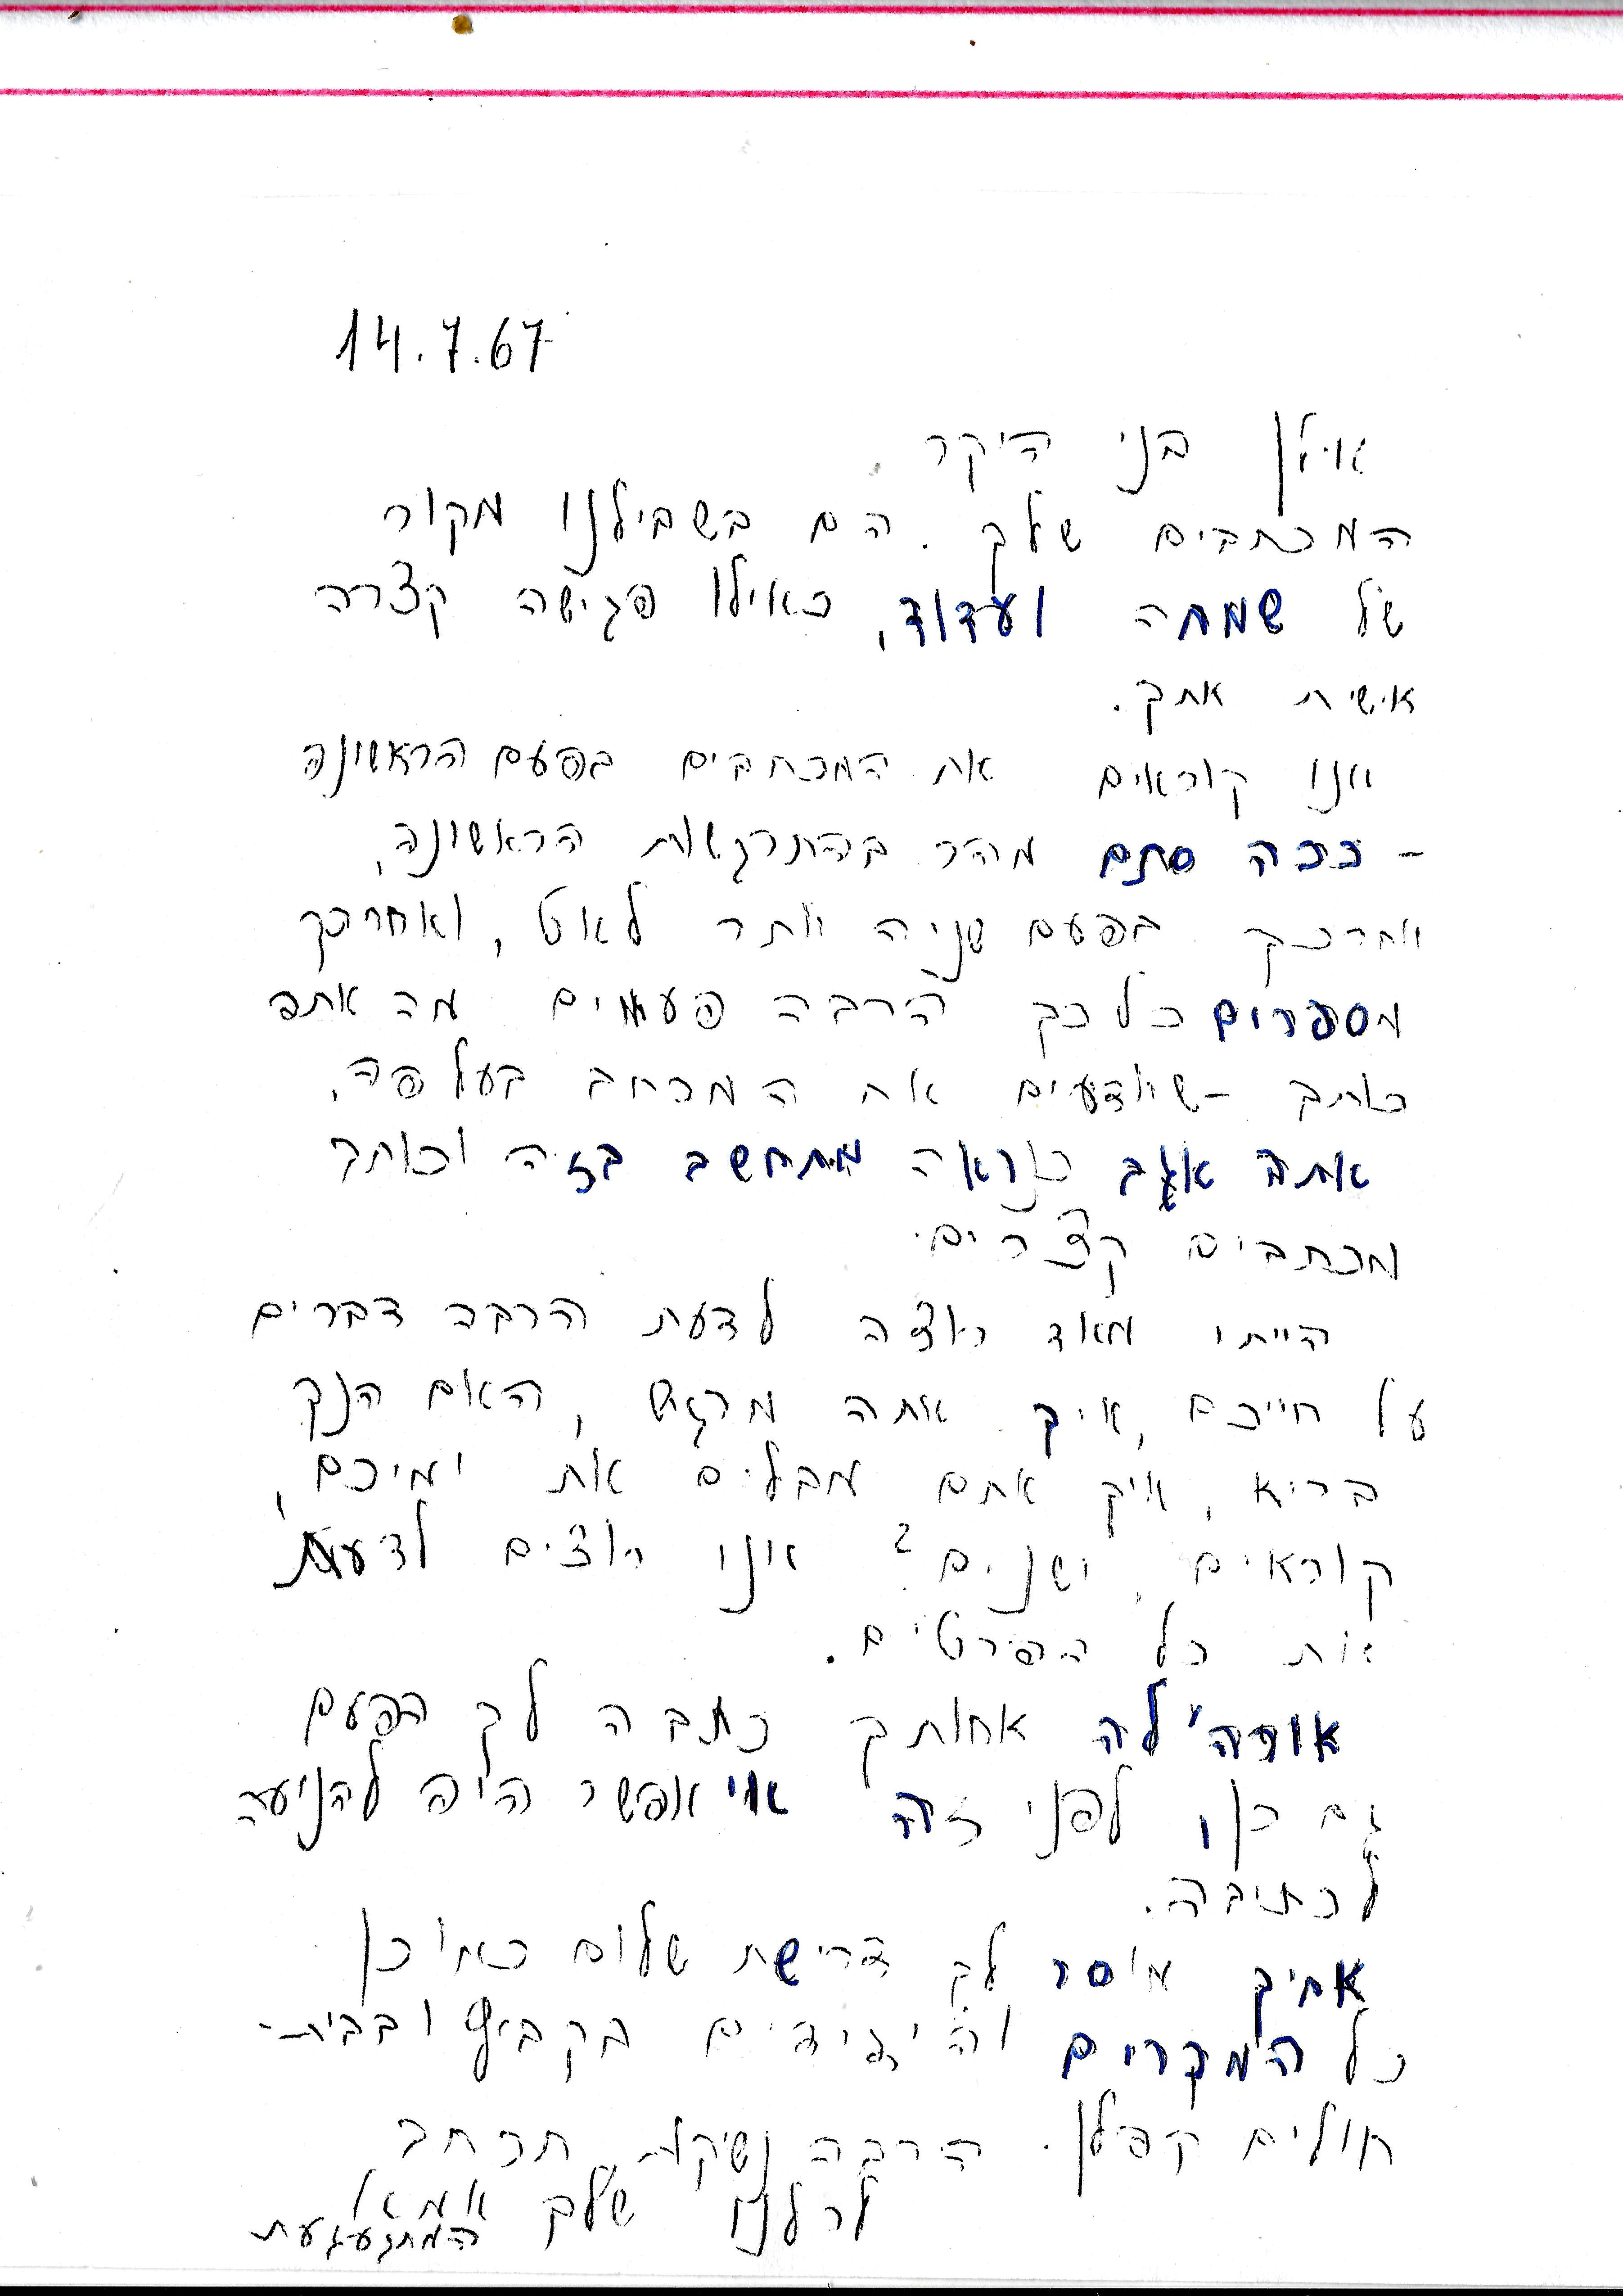 14.7.67
אילן בני היקר
המכתבים שלך. הם בשבילנו מקור
של שמחה ועדוד, כאילו פגישה קצרה
אישית אתך.
אנו קוראים את המכתבים בפעם הראשונה
- ככה סתם מהר בהתרגשות הראשונה,
אחרכך בפעם שניה יותר לאט, ואחרכך
מספרים כל כך הרבה פעמים מה אתה
כותב - שיודעים את המכתב בעל פה.
אתה אגב כנראה מתחשב בזה וכותב
מכתבים קצרים.
הייתי מאד רוצה לדעת הרבה דברים
על חייכם, איך אתה מרגיש, האם הנך
בריא, איך אתם מבלים את ימיכם,
קוראים, ישנים? אנו רוצים לדעת
את כל הפרטים.
אורה'לה אחותך כתבה לך הפעם
גם כן, לפני זה אי אפשר היה להניעה
לכתיבה.
אחיך מוסר לך דרישת שלום כמו כן
כל המכרים והידידים בקבוץ ובבית-
חולים קפלן. הרבה נשיקות תכתב
לכלנו שלך אמא
המתגעגעת